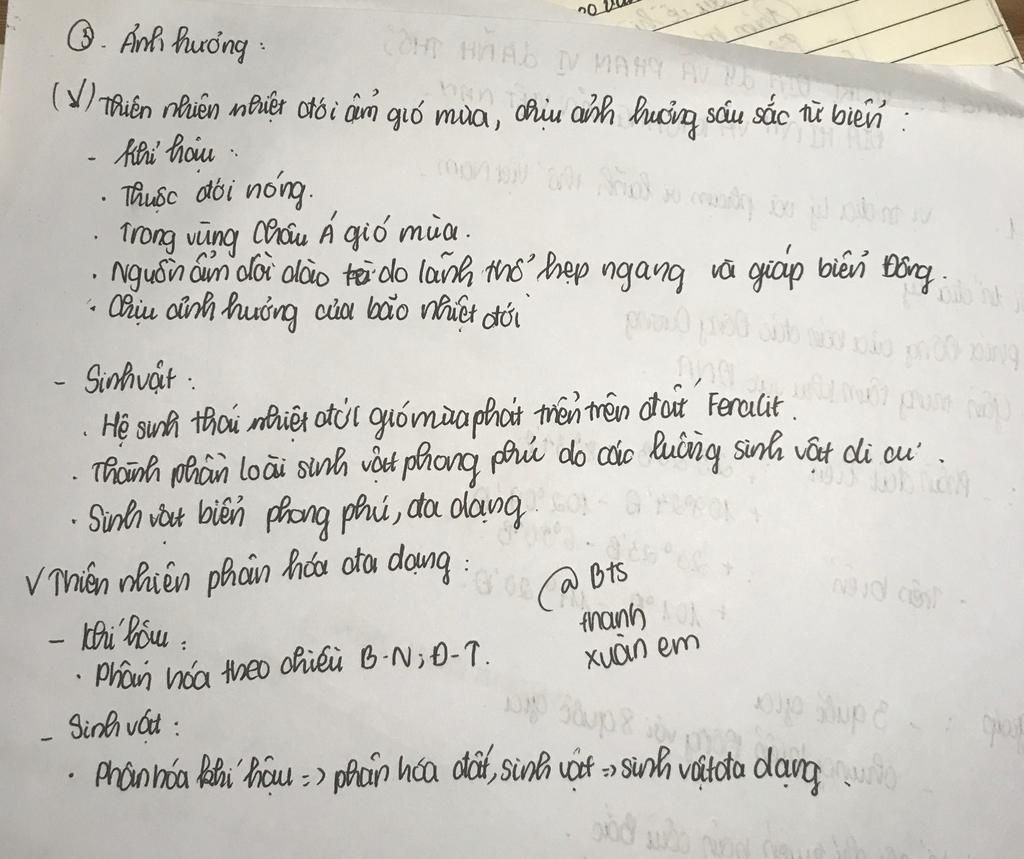 ③. Ảnh hưởng :
(√) Thiên nhiên nhiệt đới ẩm gió mùa, chịu ảnh hưởng sâu sắc từ biển :
- Khí hậu :
. Thuộc đới nóng.
. Trong vùng Châu Á gió mùa.
. Nguồn ẩm dồi dào do lãnh thổ hẹp ngang và giáp biển Đông.
. Chịu ảnh hưởng của bão nhiệt đới
- Sinh vật :
. Hệ sinh thái nhiệt đới gió mùa phát triển trên đất Feralit.
. Thành phần loài sinh vật phong phú do các luồng sinh vật di cư.
. Sinh vật biển phong phú, đa dạng.
√ Thiên nhiên phân hóa đa dạng :
@ Bts
thanh
xuân em
- Khí hậu :
. Phân hóa theo chiều B-N; Đ-T.
- Sinh vật :
. Phân hóa khí hậu => phân hóa đất, sinh vật => sinh vật đa dạng.